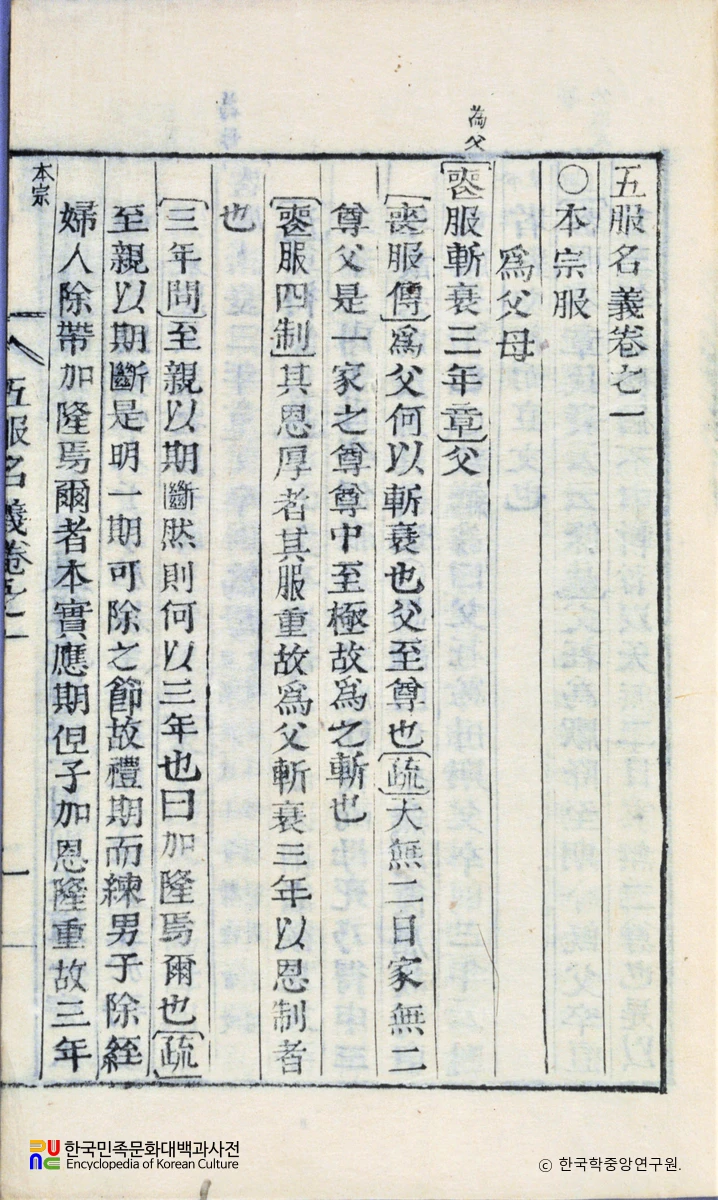 為父
五服名義卷之一
○本宗服
爲父母
[喪服斬衰三年章]父
[喪服傳]爲父何以斬衰也父至尊也[疏]天無二日家無二
尊父是一家之尊尊中至極故爲之斬也
[喪服四制]其恩厚者其服重故爲父斬衰三年以恩制者
也
[三年問]至親以期斷然則何以三年也曰加隆焉爾也[疏]
至親以期斷是明一期可除之節故禮期而練男子除絰
婦人除帶加隆焉爾者本實應期但子加恩隆重故三年
本宗
五服名義卷之一
一
한국민족문화대백과사전
Encyclopedia of Korean Culture
© 한국학중앙연구원.